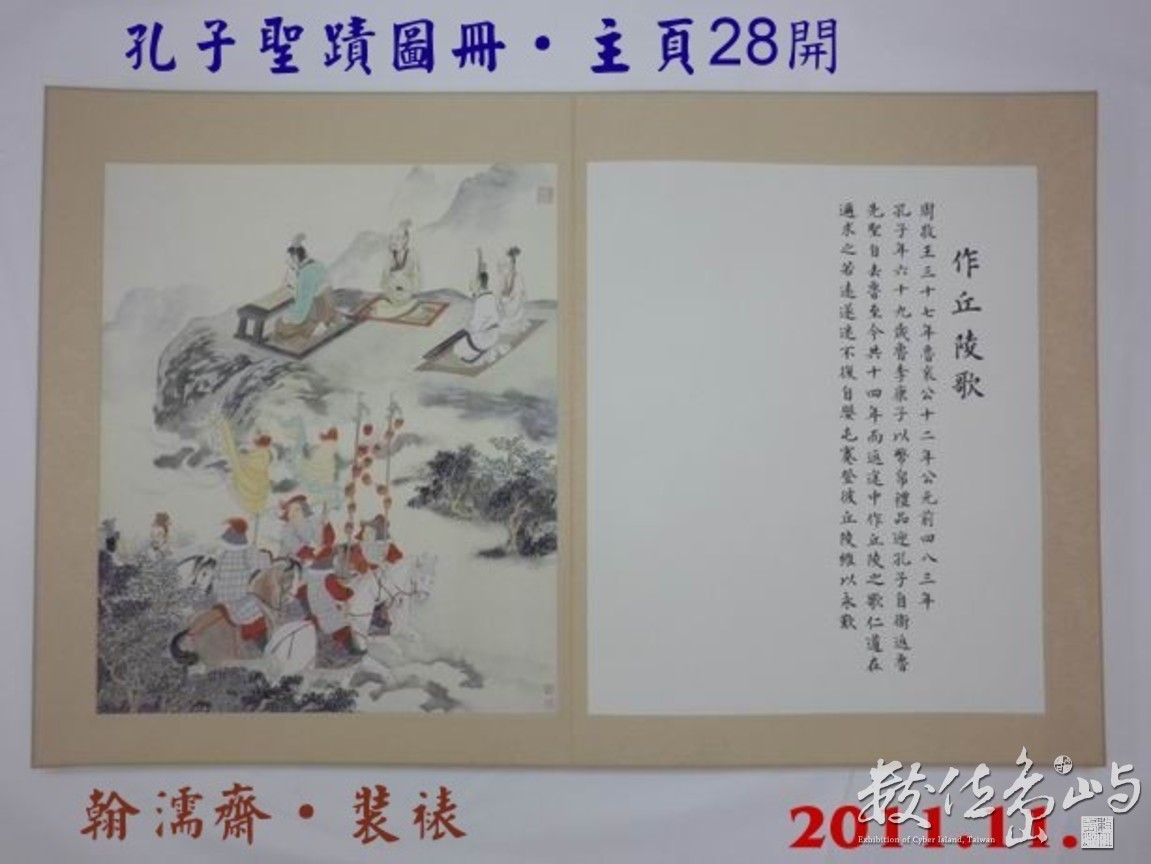 孔子聖蹟圖冊・主頁28開
作丘陵歌
周敬王三十七年魯哀公十二年公元前四八三年
孔子年六十九歲魯季康子以幣帛禮品迎孔子自衛返魯
先聖自去魯至今共十四年而返途中作丘陵之歌仁道在
邇求之若遠遂迷不復自嬰屯蹇登彼丘陵維以永歎
翰濡齋・裝裱
2011.11.
數位島嶼
Exhibition of Cyber Island, Taiwan